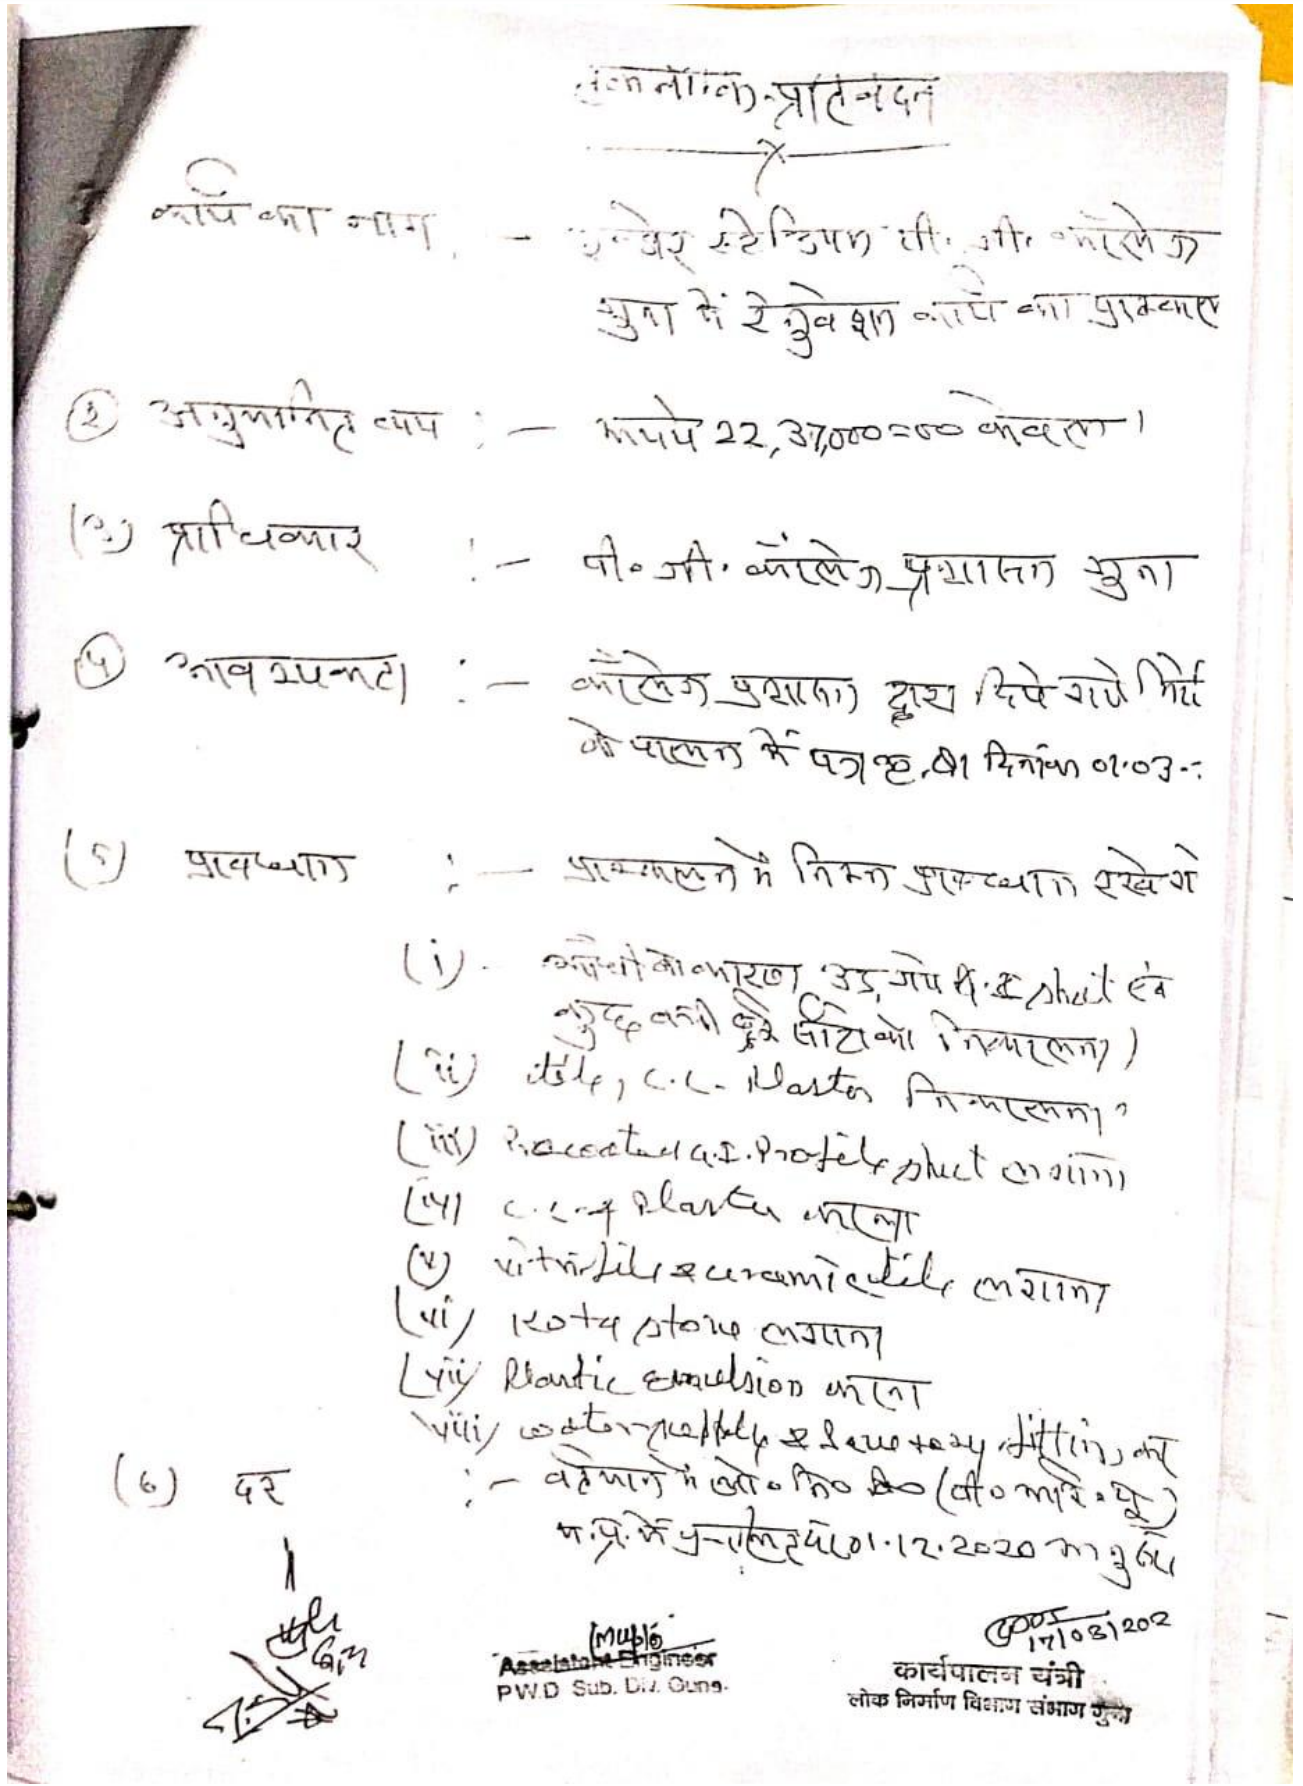 प्रतिवेदन
कार्य का नाम - स्टेडियम पी. जी. कॉलेज
गुना में रेनुवेशन कार्य का प्राक्कलन
(2) अनुमानित व्यय :- रूपये 22,37,000=00 केवल।
(3) प्राधिकार :- पी॰ जी॰ कॉलेज प्रशासन गुना
(4) आवश्यकता :- कॉलेज प्रशासन द्वारा दिये गये
के पालन में पत्र क्र. दिनांक 01.03
(5) प्रावधान :- प्राक्कलन में निम्न प्रावधान रखे गये
(i) आँधी के कारण उड़ गये sheet एवं
कुछ सीटों को निकालना
(ii) tile, C.C. Plaster निकालना
(iii) Precoated G.I. Profile sheet लगाना
(iv) C.C. & Plaster करना
(v) & ceramic tile लगाना
(vi) Kota stone लगाना
(vii) Plastic Emulsion करना
(viii) water supply & fitting
(6) दर :- वर्तमान में लो॰ नि॰ वि॰ (पी॰
म.प्र. में 01.12.2020
17/03/202
Assistant Engineer
P.W.D Sub. Div. Guna.
कार्यपालन यंत्री
लोक निर्माण विभाग संभाग गुना